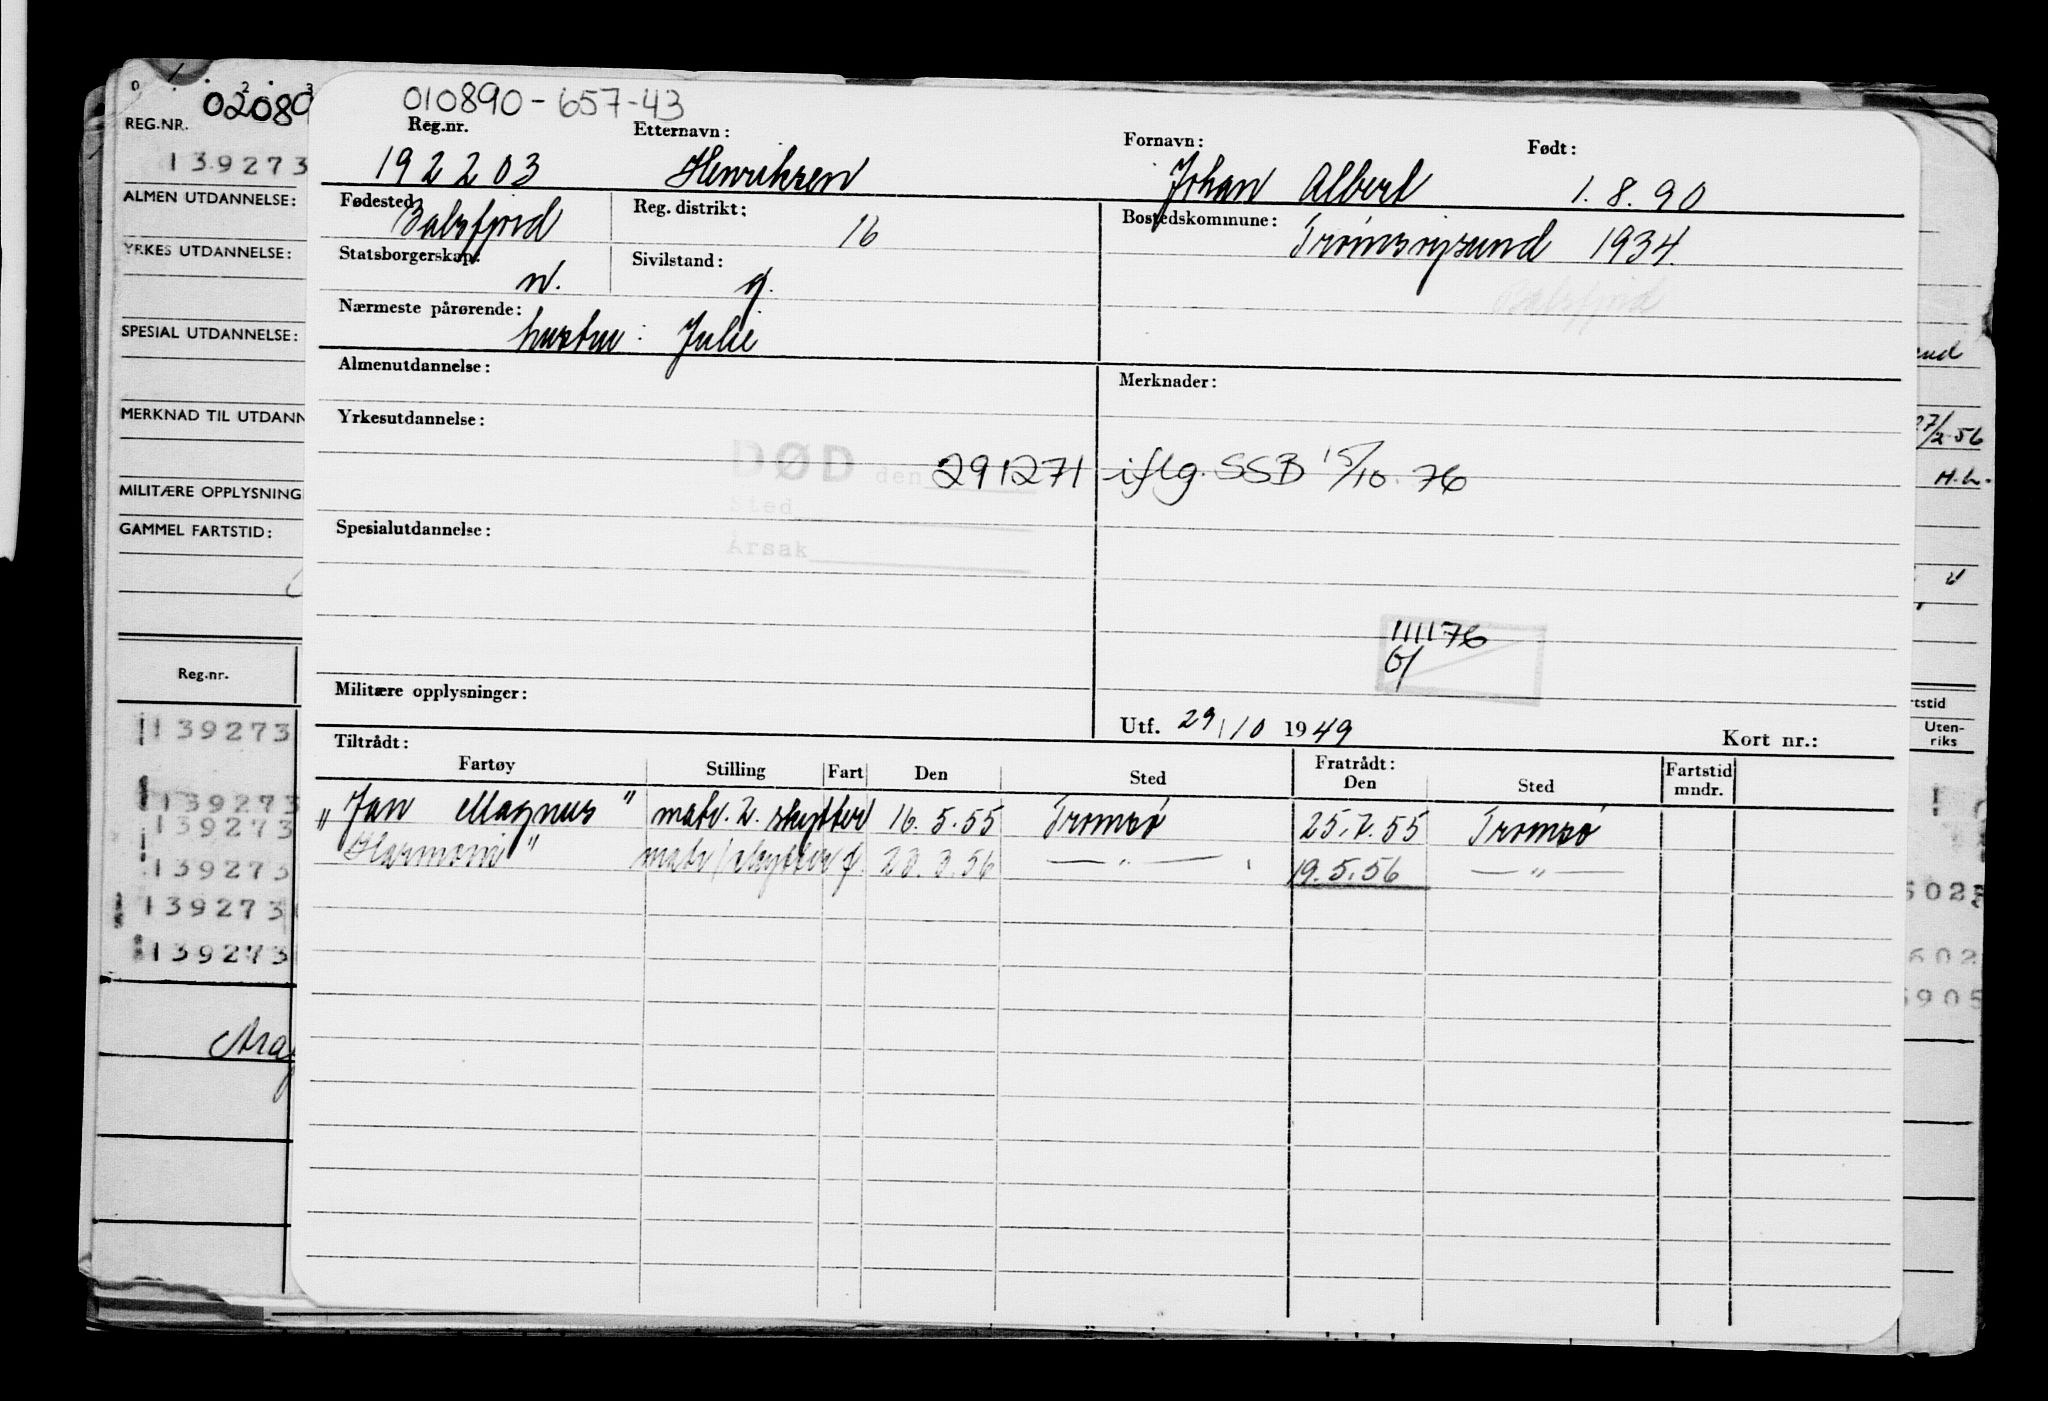 010890-657-43
Reg.nr. Etternavn: Fornavn: Født:
192203 Henriksen Johan Albert 1.8.90
Fødested Reg. distrikt: Bostedskommune:
Balsfjord 16 Tromsøysund 1934.
Statsborgerskap: Sivilstand:
n. g. Balsfjord
Nærmeste pårørende:
hustru: Julie
Almenutdannelse: Merknader:
Yrkesutdannelse:
DØD den 291271 iflg. SSB 15/10.76
Sted
Årsak
Spesialutdannelse:
111176
Militære opplysninger:
Utf. 29/10 1949 Kort nr.:
Tiltrådt: Fratrådt: Fartstid
Fartøy Stilling Fart Den Sted Den Sted mndr.
"Jan Magnus" matr. 2. skytter 16.5.55 Tromsø 25.7.55 Tromsø
Harmoni" matr/skytter f. 20.3.56 — " — 19.5.56 — " —
0 1 2 3
02080
REG.NR.
139273
ALMEN UTDANNELSE:
YRKES UTDANNELSE:
SPESIAL UTDANNELSE:
MERKNAD TIL UTDANN
MILITÆRE OPPLYSNING
GAMMEL FARTSTID:
Reg.nr.
139273
139273
139273
139273
139273
139273
und
27/2-56
H.L.
rtstid
Uten-
riks
602
5905